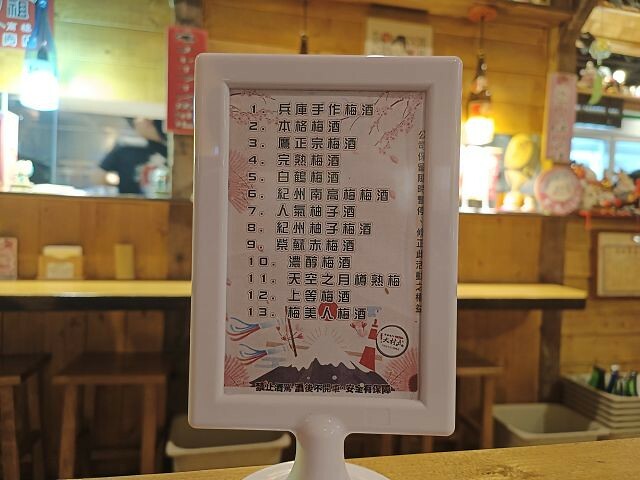 1. 兵庫手作梅酒
2. 本格梅酒
3. 鷹正宗梅酒
4. 完熟梅酒
5. 白鶴梅酒
6. 紀州南高梅梅酒
7. 人氣柚子酒
8. 紀州柚子梅酒
9. 紫蘇赤梅酒
10. 濃醇梅酒
11. 天空之月樽熟梅
12. 上等梅酒
13. 梅美人梅酒
公司保留隨時暫停、修正此活動之權益
禁止酒駕 酒後不開車 安全有保障